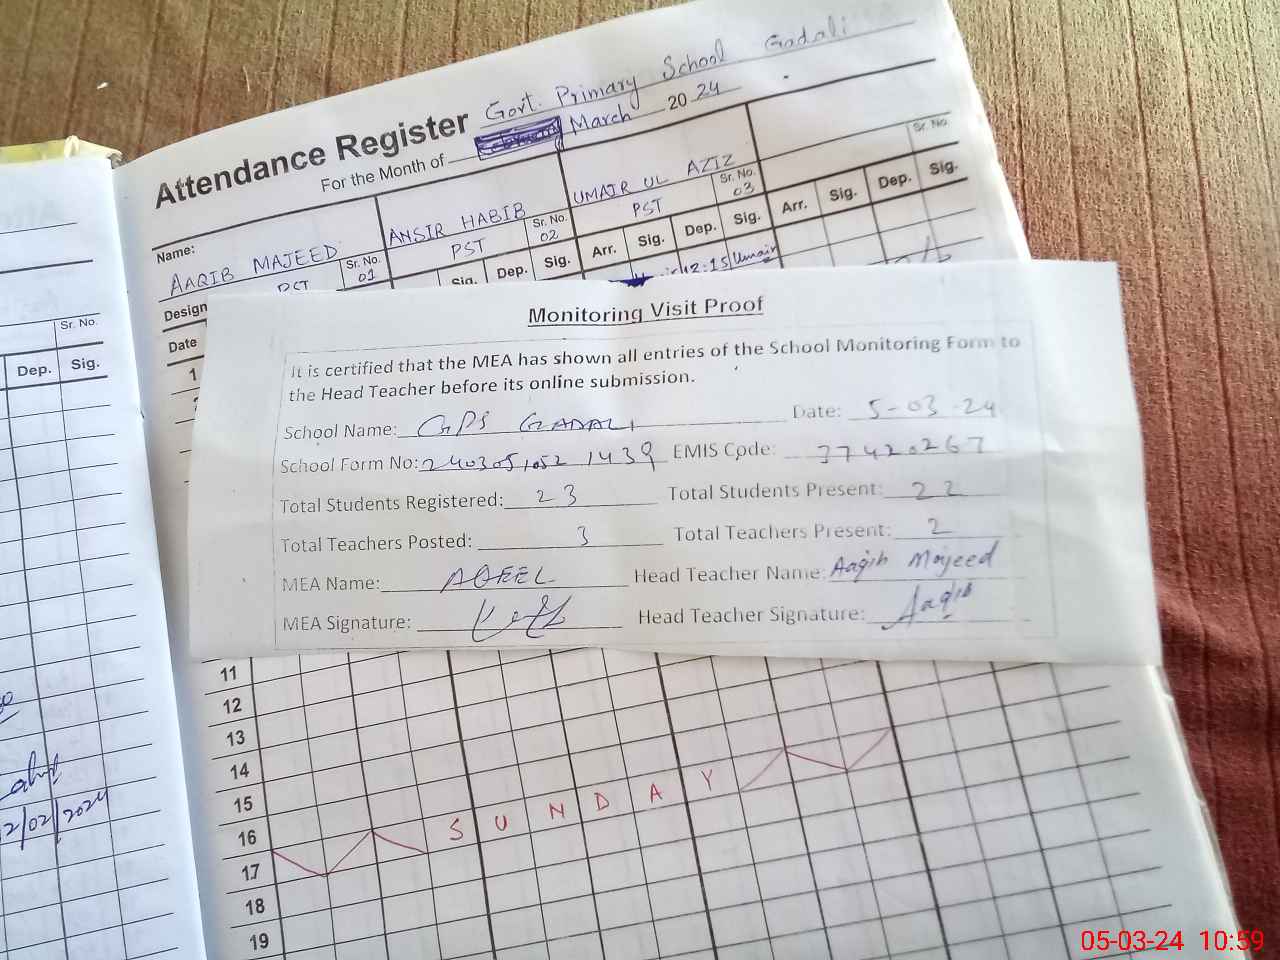 Attendance Register Govt. Primary School Gadali
For the Month of March 2024
Name: AAQIB MAJEED ANSIR HABIB UMAIR UL AZIZ
Sr. No. 01 PST Sr. No. 02 PST Sr. No. 03 Sr. No.
Design
Date Sig. Dep. Sig. Arr. Sig. Dep. Sig. Arr. Sig. Dep. Sig.
12:15 Umair
1
Sr. No.
Dep. Sig.
Monitoring Visit Proof
It is certified that the MEA has shown all entries of the School Monitoring Form to
the Head Teacher before its online submission.
School Name: GPS GADALI Date: 5-03-24
School Form No: 2403051052 1439 EMIS Code: 37420267
Total Students Registered: 23 Total Students Present: 22
Total Teachers Posted: 3 Total Teachers Present: 2
MEA Name: AQEEL Head Teacher Name: Aaqib Majeed
MEA Signature: Head Teacher Signature: Aaqib
11
12
13
14
15
16 SUNDAY
17
18
19
2/02/2024
05-03-24 10:59